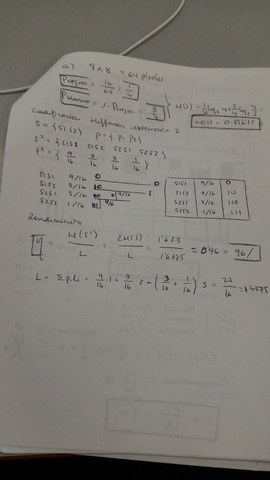 a) 8 x 8 = 64 píxeles
Pnegros = 16/64 = 1/4
Pblanco = 1 - Pnegro = 3/4
H(S) = 1/4 log₂ 4 + 3/4 log₂ 4/3 =
H(S) = 0.81125
Codificación Huffman extensión 2
S = {S1 S2} P = {P1 P2}
S² = {S1S1 S1S2 S2S1 S2S2}
P² = {9/16 3/16 3/16 1/16}
S1S1 9/16 0
S1S2 3/16 10
S2S1 3/16 110
S2S2 1/16 111
S1S1 9/16 0
S1S2 9/16 10
S2S1 3/16 110
S2S2 1/16 111
Rendimiento
η = H(S²)/L = 2H(S)/L = 1'623/1'6875 = 0'96 = 96%
L = Σ pi·li = 9/16 · 1 + 3/16 · 2 + (3/16 + 1/16) 3 = 27/16 = 1'6875